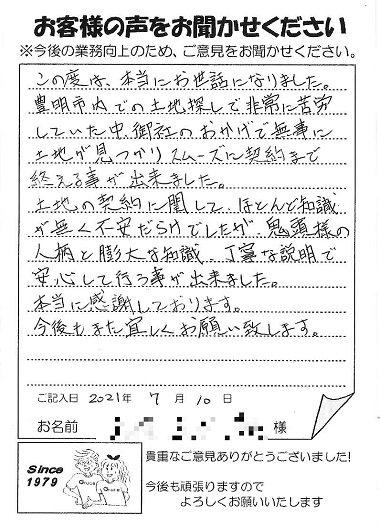 お客様の声をお聞かせください
※今後の業務向上のため、ご意見をお聞かせください。
この度は、本当にお世話になりました。
豊明市内での土地探しで非常に苦労
していた中、御社のおかげで無事に
土地が見つかりスムーズに契約まで
終える事が出来ました。
土地の契約に関して、ほとんど知識
が無く不安だらけでしたが、鬼頭様の
人柄と膨大な知識、丁寧な説明で
安心して行う事が出来ました。
本当に感謝しております。
今後もまた宜しくお願い致します。
ご記入日 2021年 7月 10日
お名前 様
Since
1979
貴重なご意見ありがとうございました!
今後も頑張りますので
よろしくお願いいたします